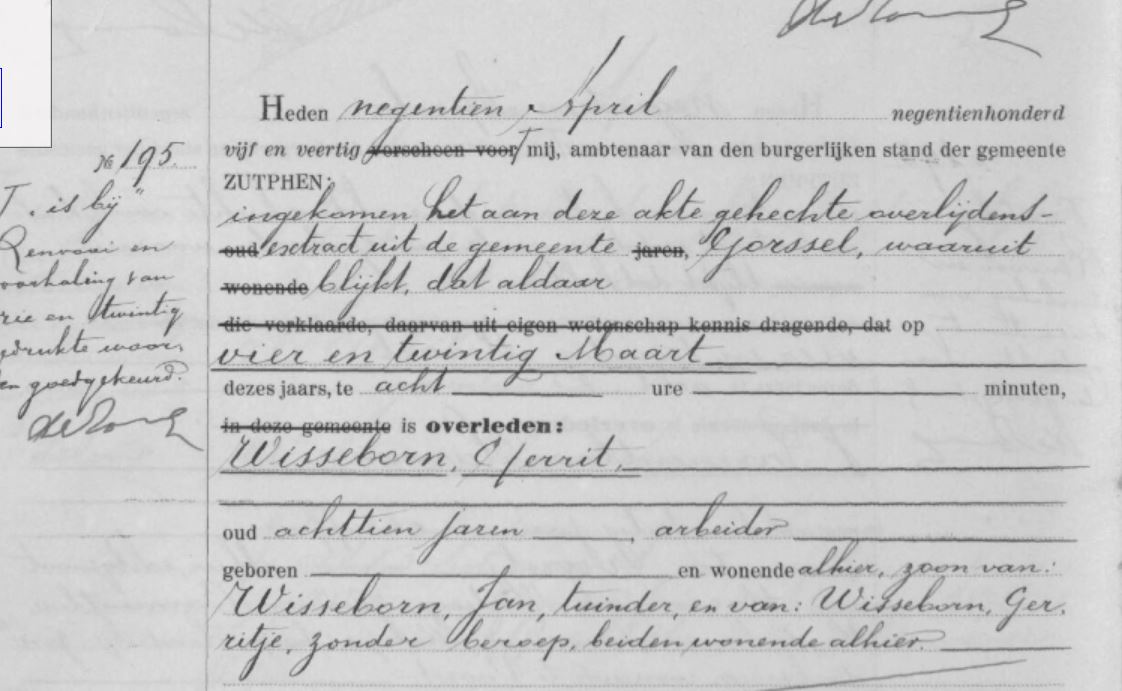 Heden negentien April negentienhonderd
vijf en veertig verscheen voor mij, ambtenaar van den burgerlijken stand der gemeente
ZUTPHEN:
ingekomen het aan deze akte gehechte overlijdens-
oud extract uit de gemeente jaren, Gorssel, waaruit
wonende blijkt, dat aldaar
die verklaarde, daarvan uit eigen wetenschap kennis dragende, dat op
vier en twintig Maart
dezes jaars, te acht ure minuten,
in deze gemeente is overleden:
Wisseborn, Gerrit,
oud achttien jaren, arbeider
geboren en wonende alhier, zoon van:
Wisseborn, Jan, tuinder, en van: Wisseborn, Ger-
ritje, zonder beroep, beiden wonende alhier.
№ 195
T is bij
Renvooi en
doorhaling van
drie en twintig
gedrukte woor-
den goedgekeurd